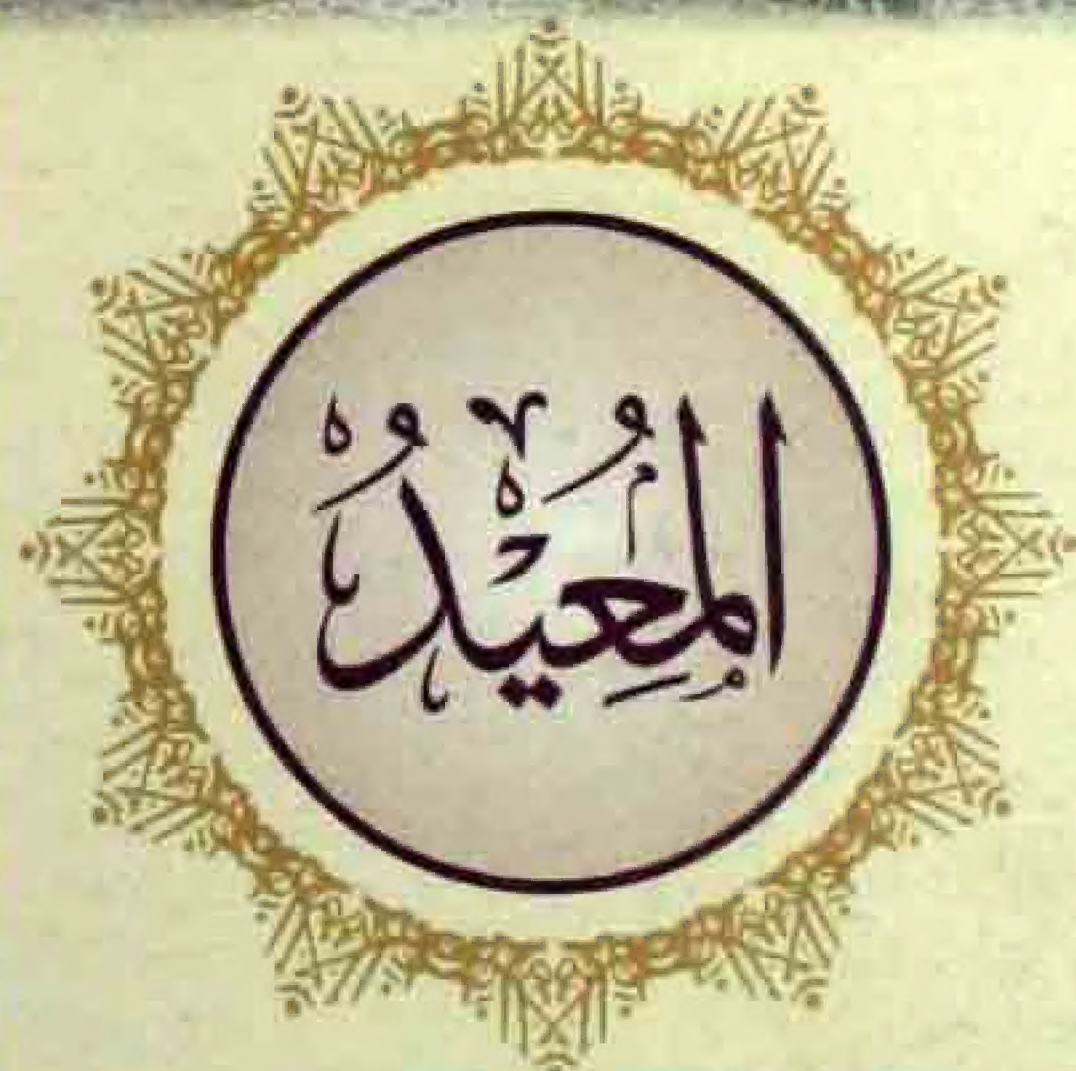 المُعِيْدُ